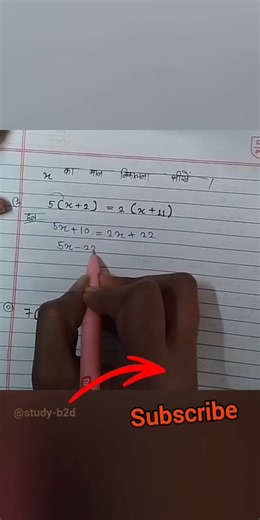 x का मान निकालना सीखें ।
5(x+2) = 2(x+11)
हल
5x+10 = 2x+22
5x-22
7(
@study-b2d
Subscribe